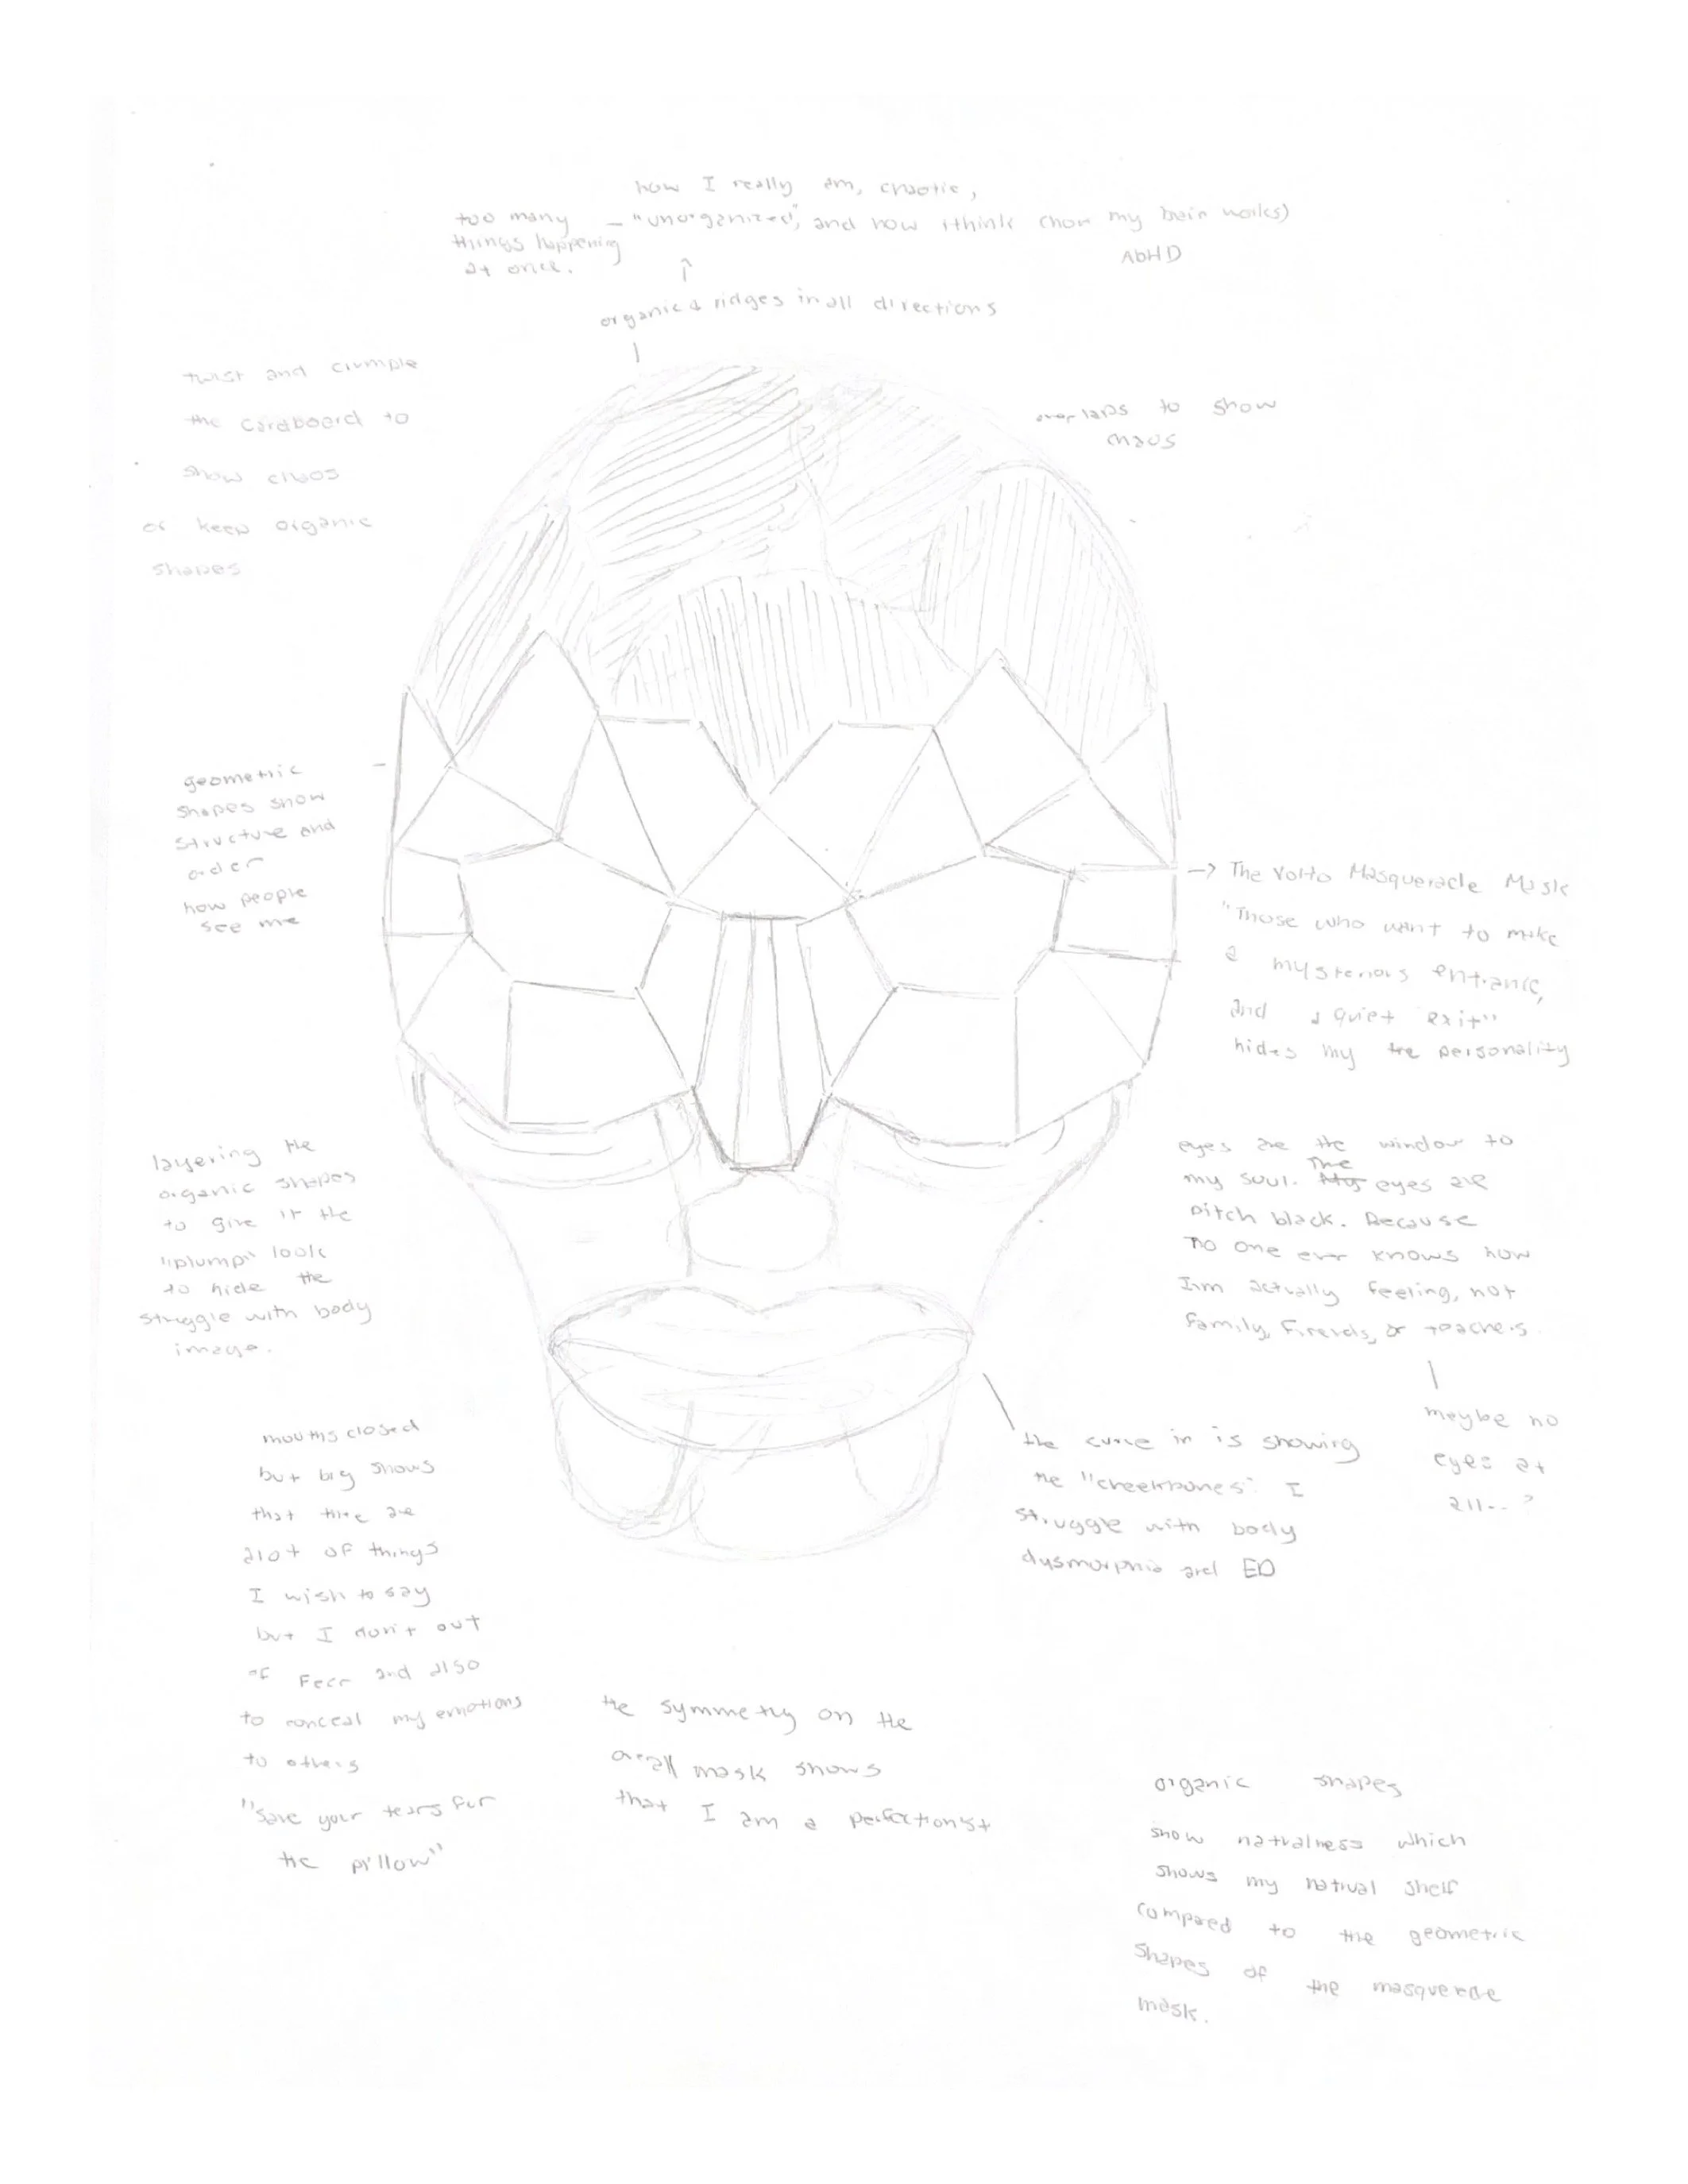 how I really am, chaotic,
too many – "unorganized", and how I think (how my brain works)
things happening
at once.
ADHD
↑
organic ridges in all directions
twist and crumple
the cardboard to
show chaos
or keep organic
shapes
overlaps to show
chaos
geometric
shapes show
structure and
order
how people
see me
→ The Volto Masquerade Mask
"Those who want to make
a mysterious entrance,
and a quiet exit"
hides my personality
layering the
organic shapes
to give it the
"plump" look
to hide the
struggle with body
image.
eyes are the window to
my soul. The eyes are
pitch black. Because
no one ever knows how
I'm actually feeling, not
family, friends, or teachers.
maybe no
eyes at
all... ?
mouths closed
but big shows
that there are
alot of things
I wish to say
but I don't out
of Fear and also
to conceal my emotions
to others
"Save your tears for
the pillow"
the curve in is showing
the "cheekbones". I
struggle with body
dysmorphia and ED
the symmetry on the
overall mask shows
that I am a perfectionist
organic shapes
show naturalness which
shows my natural shelf
compared to the geometric
shapes of the masquerade
mask.